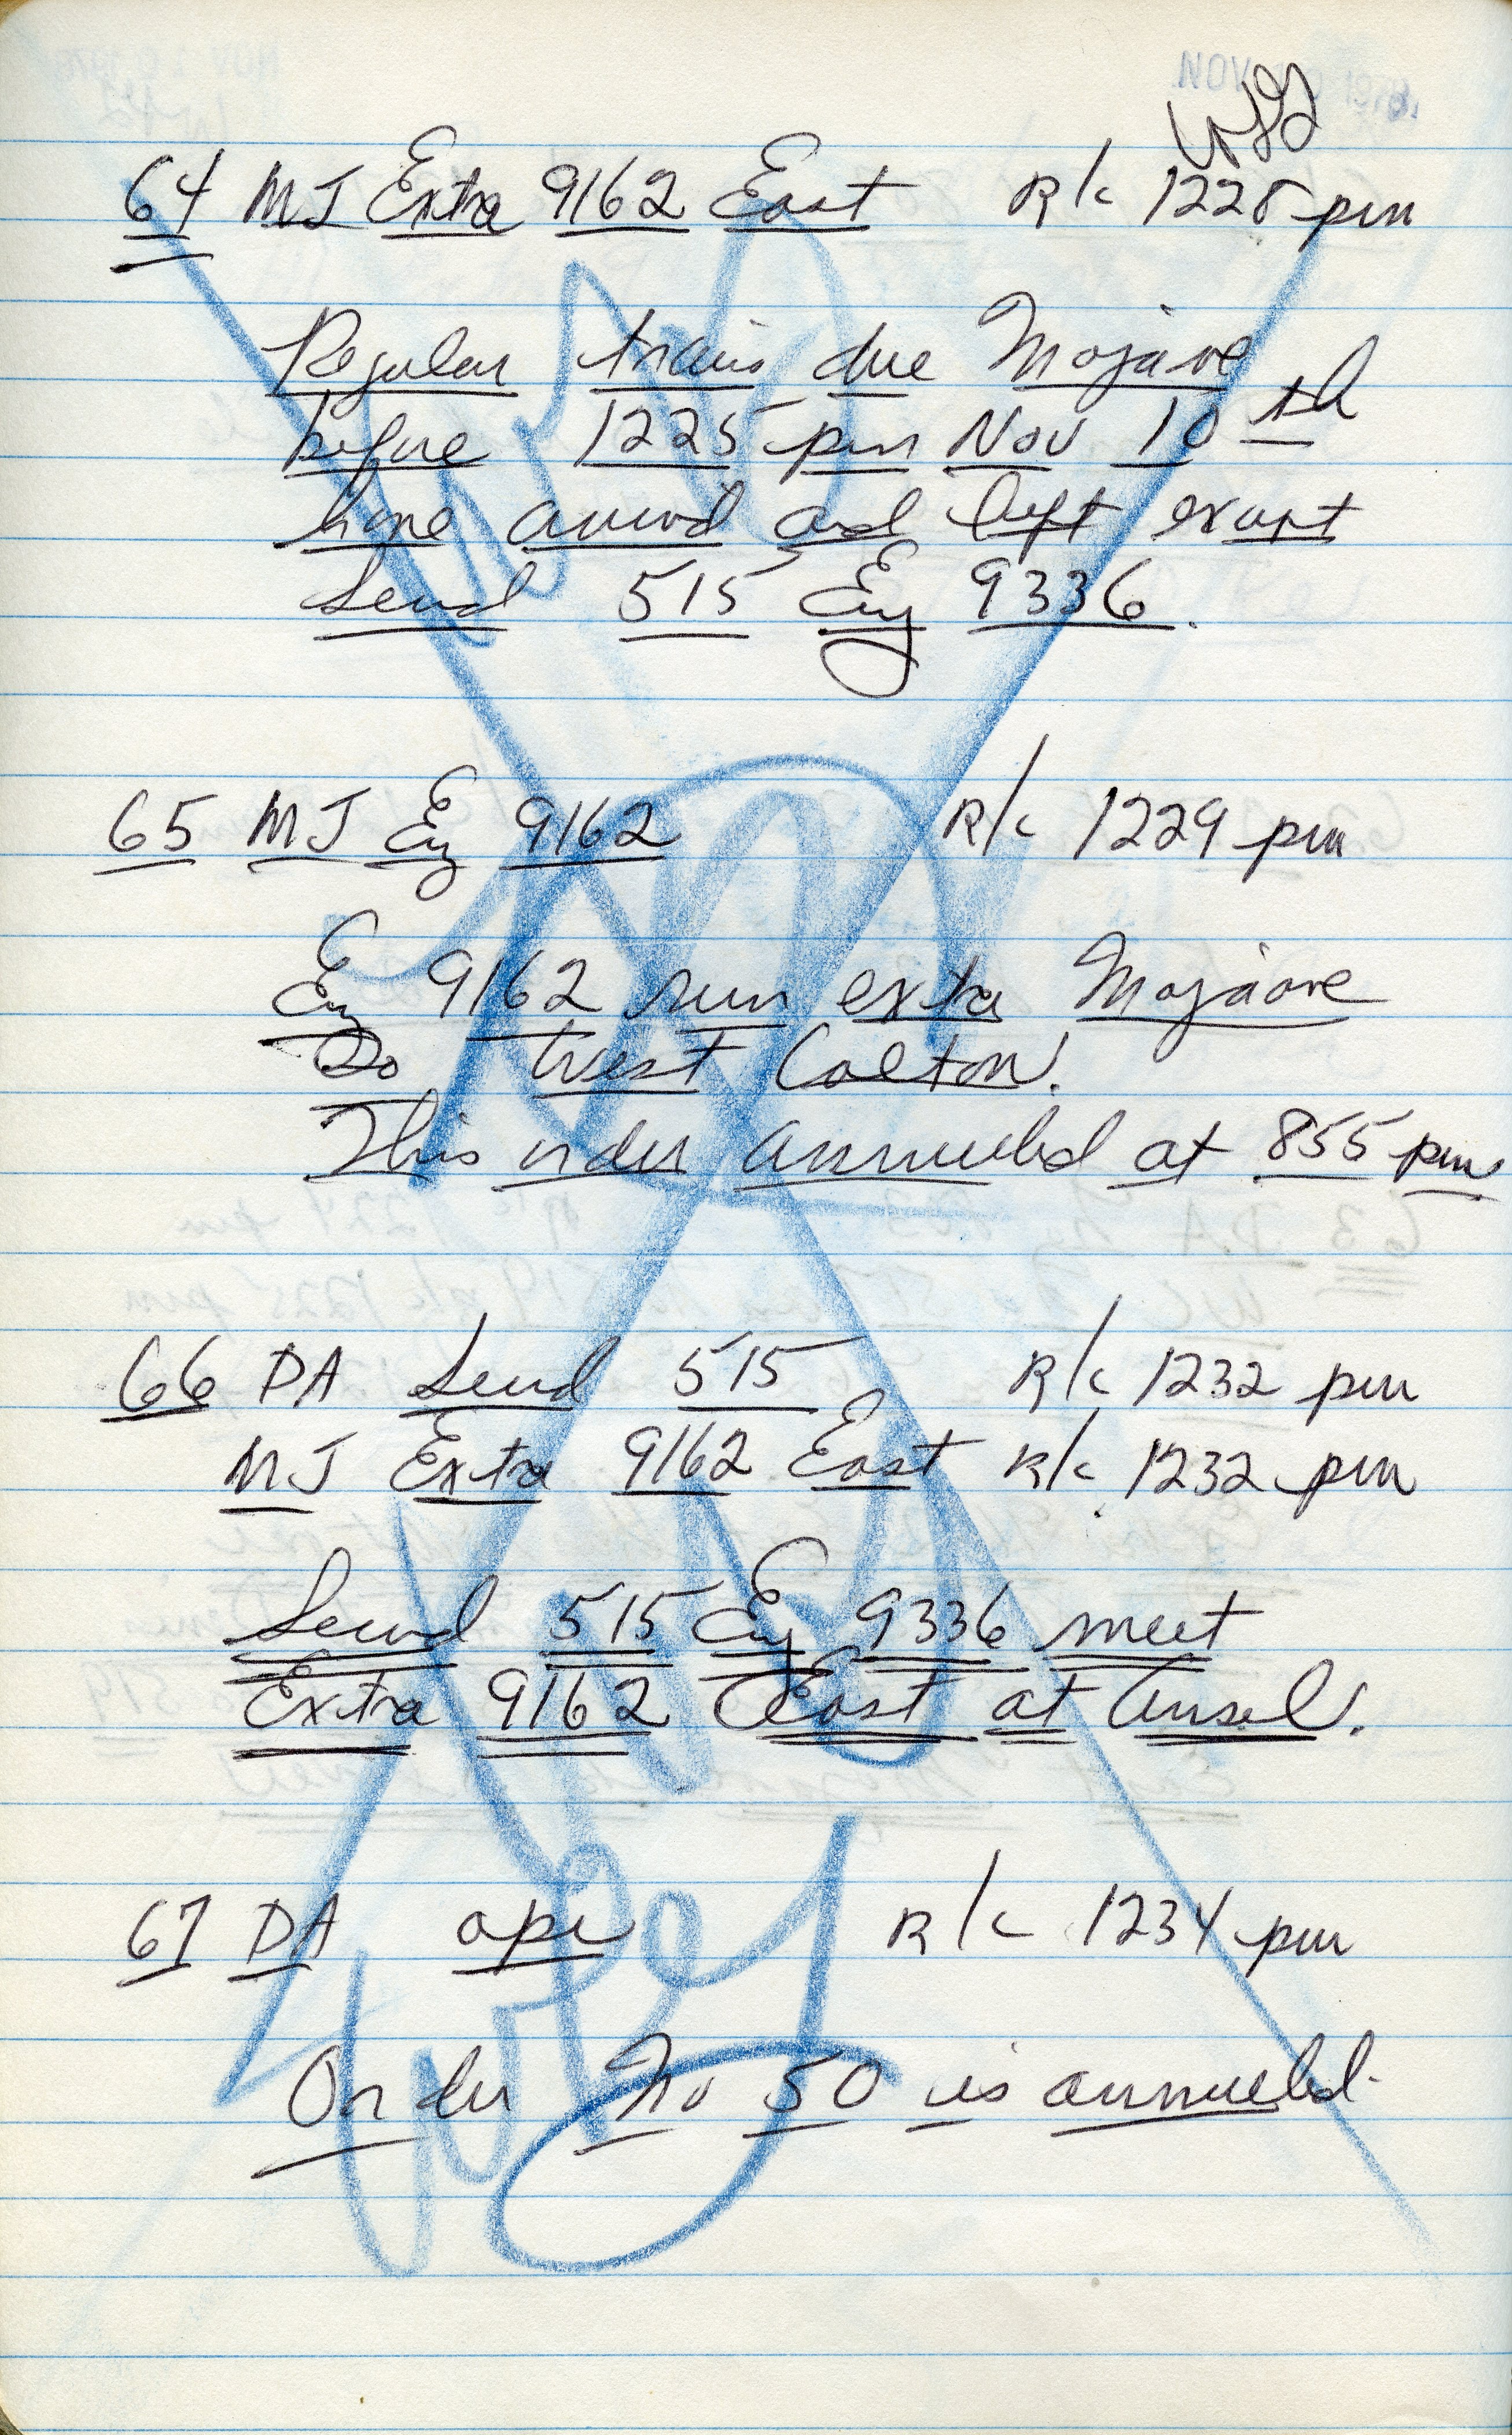 64 MJ Extra 9162 East R/c 1228 pm
Regular trains due Mojave
before 1225 pm Nov 10th
have arrived and left except
Second 515 Eng 9336.
65 MJ Eng 9162 R/c 1229 pm
Eng 9162 run extra Mojave
to West Colton.
This order annulled at 855 pm
66 DA Second 515 R/c 1232 pm
MJ Extra 9162 East R/c 1232 pm
Second 515 Eng 9336 meet
Extra 9162 East at Ansel.
67 DA opr R/c 1234 pm
Order No 50 is annulled.